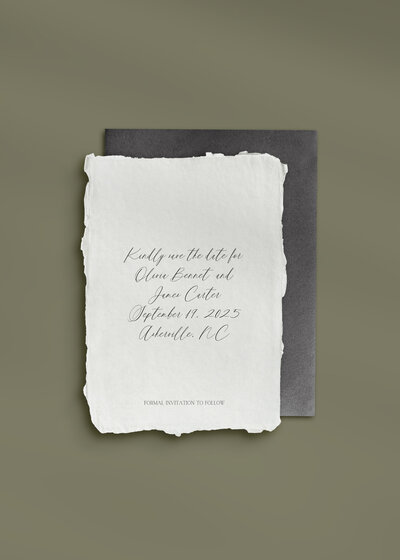 Kindly save the date for
Olivia Bennet and
James Carter
September 19, 2025
Asheville, NC
FORMAL INVITATION TO FOLLOW